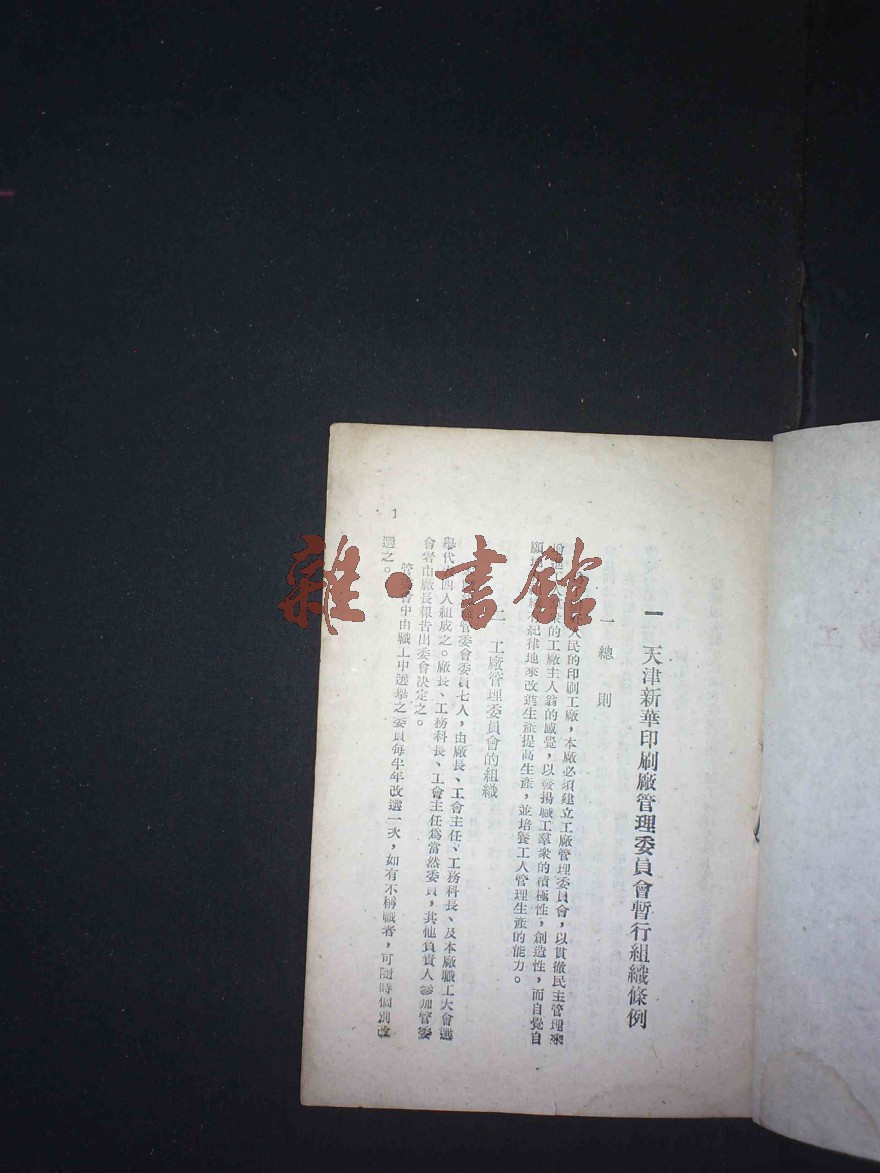 一 天津新華印刷廠管理委員會暫行組織條例
一 總 則
人民的印刷工廠，本廠必須建立工廠管理委員會，以貫徹民主管理來
的工廠主人翁的感覺，以發揚職工羣衆的積極性，創造性，而自覺自
願 紀律地來改進生產提高生產，並培養工人管理生產的能力。
二 工廠管理委員會的組織
管委會委員七人，由廠長、工會主任、工務科長、及本廠職工大會選
舉代 四人組成之。廠長、工務科長、工會主任爲當然委員，其他負責人參加管委
會者由廠長報告出委會決定之。
管委會中由職工中選舉之委員每半年改選一次，如有不稱職者，可隨時個別改
選之。
1
雜·書館